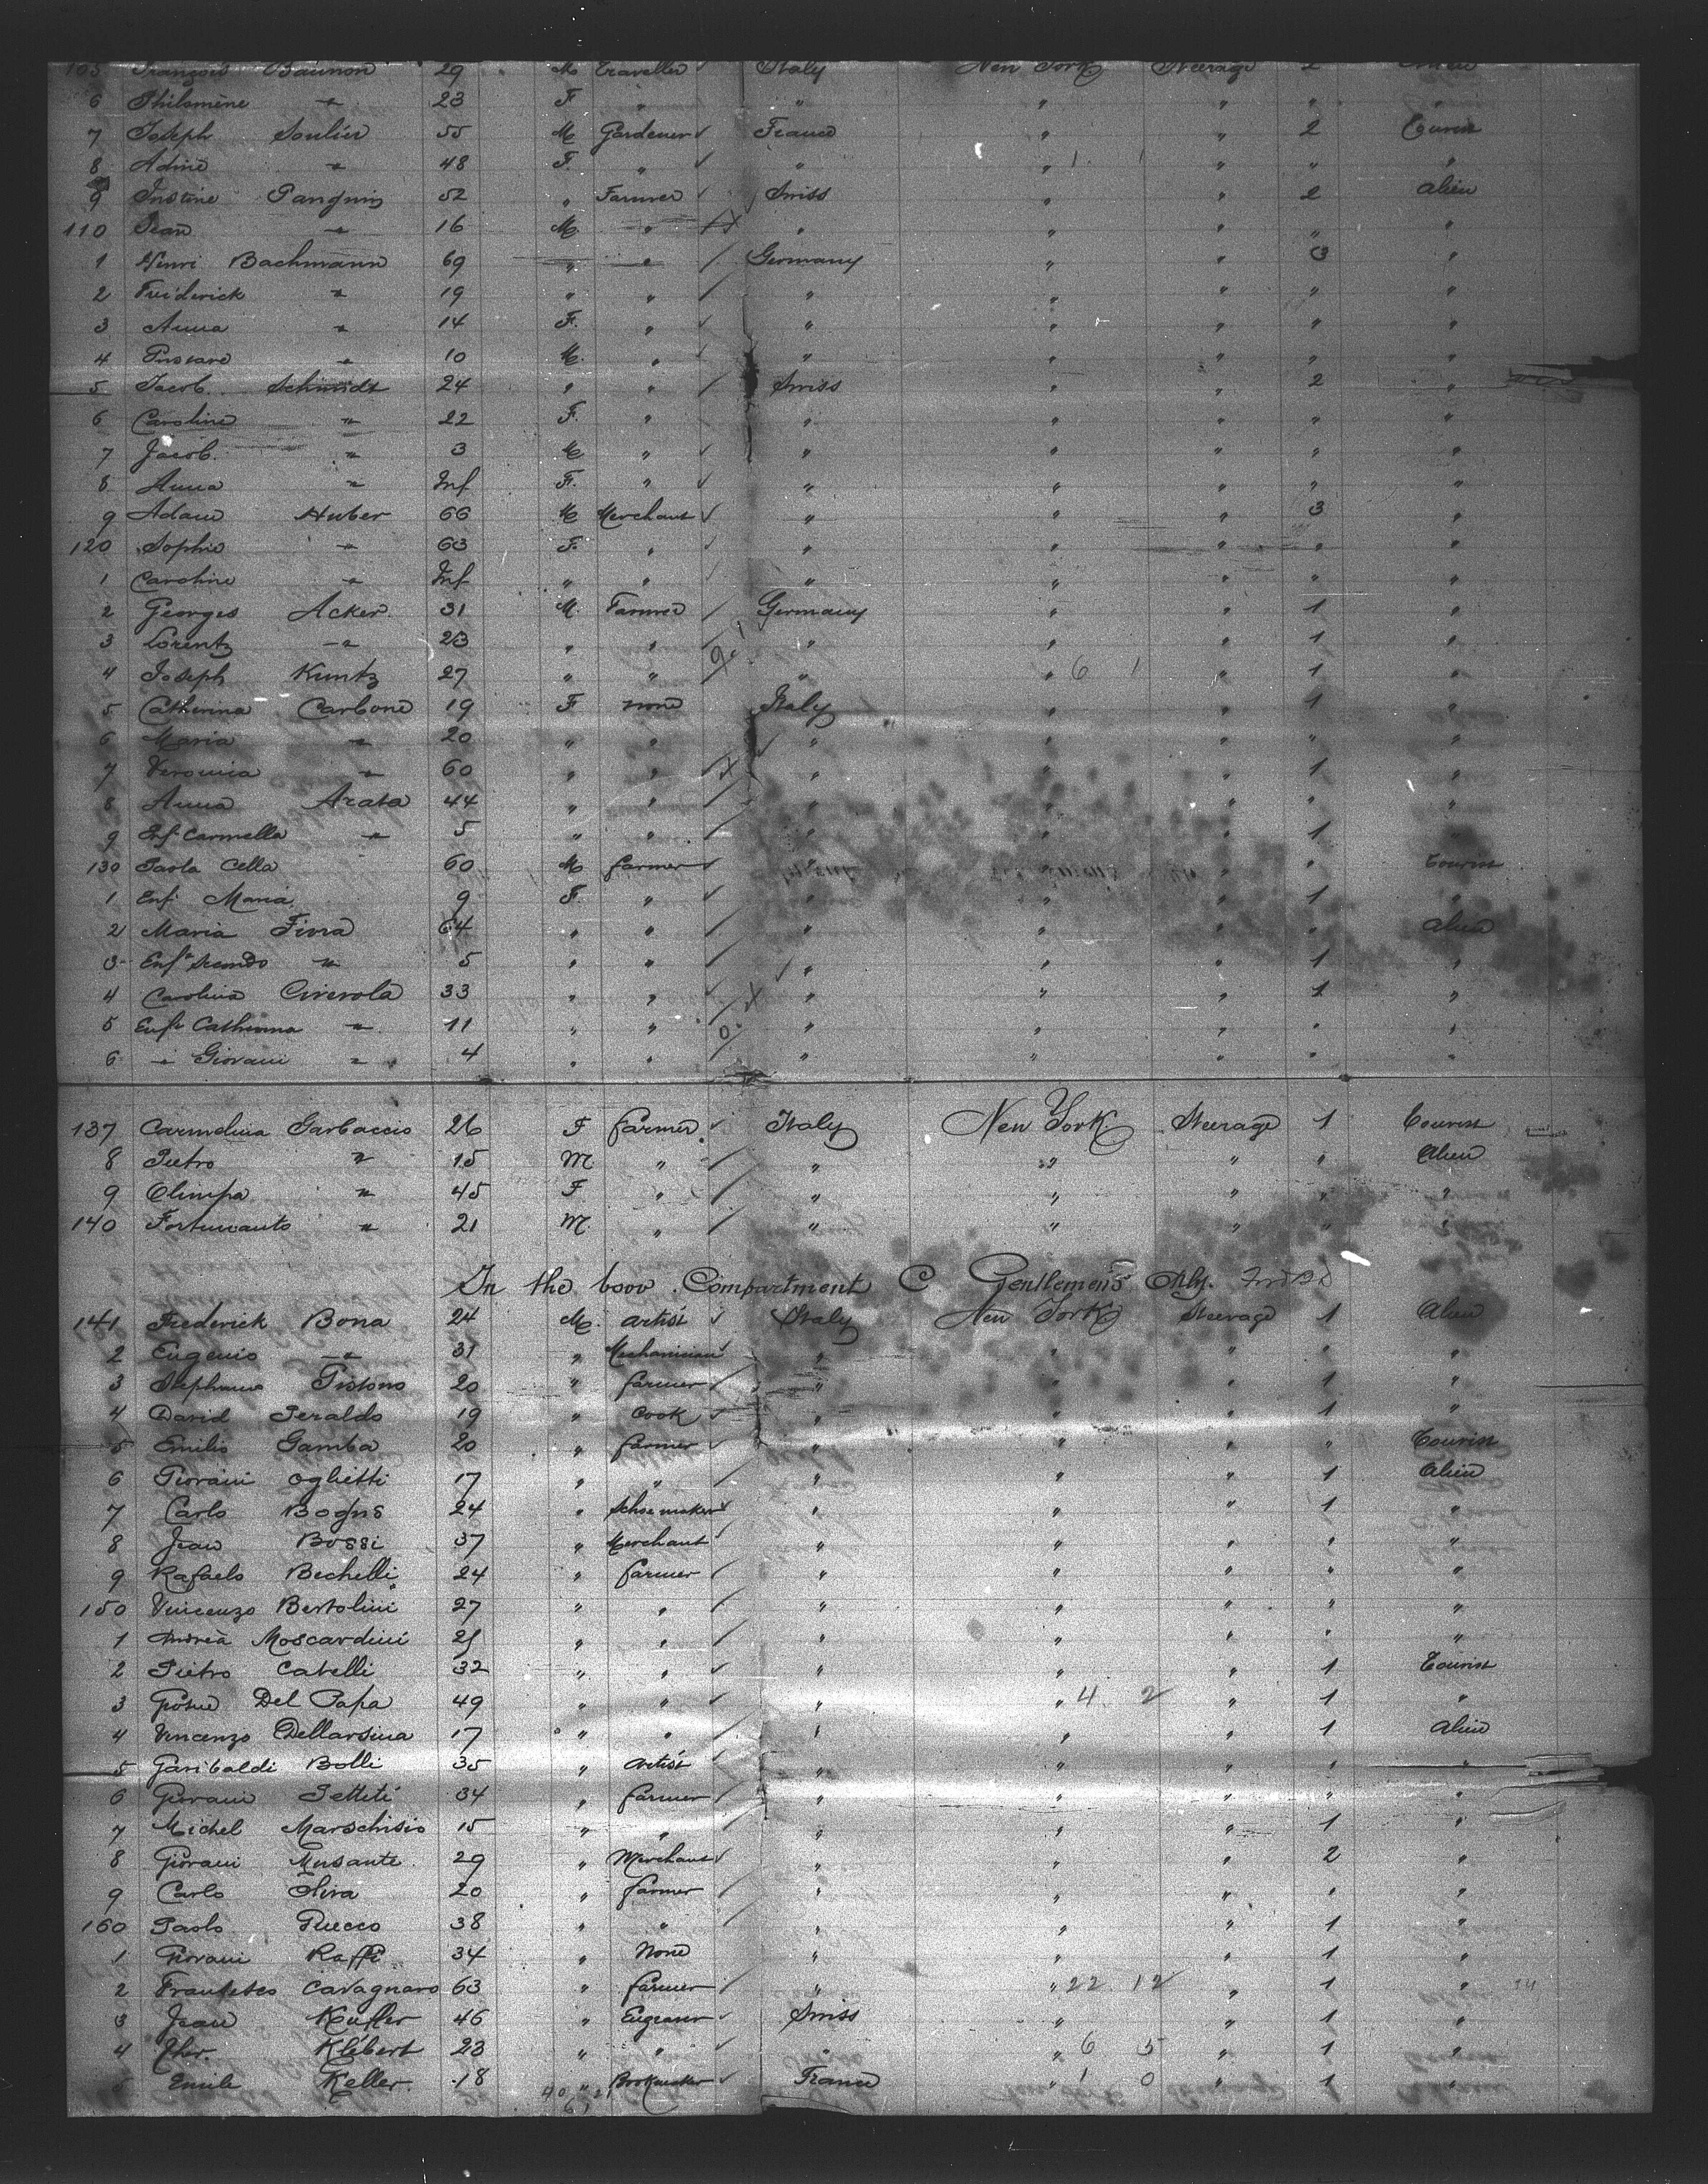 105 François Baumon 29 M Traveller Italy New York Steerage 2
6 Philomène " 23 F " " " " " "
7 Joseph Soulier 55 M Gardener ✓ France " " 2 Tourist
8 Adine " 48 F. " ✓ " " 1 1 " " "
9 52 " Farmer ✓ Swiss " " 2 Alien
110 Jean " 16 M " " " " " "
1 Henri Bachmann 69 " " / Germany " " 3 "
2 Frederick " 19 " " / " " " " "
3 Anna " 14 F. " ✓ " " " " "
4 " 10 M. " ✓ " " " " "
5 Jacob Schmidt 24 " " / Swiss " " 2 "
6 Caroline " 22 F. " ✓ " " " " "
7 Jacob " 3 M " ✓ " " " " "
8 Anna " Inf F. " ✓ " " " " "
9 Adam Huber 66 M Merchant ✓ " " " 3 "
120 Sophie " 63 F. " ✓ " " " " "
1 Caroline " Inf " " ✓ " " " " "
2 Georges Acker 31 M. Farmer / Germany " " 1 "
3 Lorentz " 23 " " / " " " 1 "
4 Joseph Kuntz 27 " " " " 6 1 " 1 "
5 Catherina Carbone 19 F none Italy " " 1 "
6 Maria " 20 " " " " " " "
7 Veronica " 60 " " " " " 1 "
8 Anna Arata 44 " " / " " " " "
9 Enf. Carmella " 5 " " / " " " 1 "
130 Paola Cella 60 M farmer ✓ " " " " Tourist
1 Enf. Maria 9 F " ✓ " " " 1 "
2 Maria 64 " " / " " " " Alien
3 Enf. Secondo " 5 " " / " " " 1 "
4 Carolina 33 " " ✓ " " " 1 "
5 Enf. Catherina " 11 " " " " " " "
6 " Giovani " 4 " " " " " " "
137 Carmelina Garbaccio 26 F farmer ✓ Italy New York Steerage 1 Tourist
8 Pietro " 15 M " / " " " " Alien
9 Olimpa " 45 F " / " " " " "
140 Fortunanto " 21 M. " / " " " " "
In the boov. Compartment C Gentlemens Only.
141 Frederick Bona 24 M. artist ✓ Italy New York Steerage 1 Alien
2 Eugenio " 31 " Mechanician ✓ " " " " "
3 Pistono 20 " farmer / " " " 1 "
4 David Peraldo 19 " Cook ✓ " " " 1 "
5 Emilio Gamba 20 " farmer ✓ " " " " Tourist
6 Giovani Oglietti 17 " " / " " " 1 Alien
7 Carlo 24 " Schoemaker ✓ " " " 1 "
8 Jean Bossi 37 " Merchant ✓ " " " " "
9 Rafaelo Bechelli 24 " farmer / " " " " "
150 Vincenzo Bertolini 27 " " / " " " " "
1 Andrea Moscardini 21 " " / " " " " "
2 Pietro Catelli 32 " " ✓ " " " 1 Tourist
3 Giosue Del Papa 49 " " ✓ " " 4 2 " 1 "
4 Vincenzo Dellarsina 17 " " / " " " 1 Alien
5 Garibaldi Bolli 35 " artist ✓ " " " " "
6 Giovani Pettiti 34 " farmer / " " " " "
7 Michel Marschisio 15 " " / " " " 1 "
8 Giovani Musante 29 " Merchant ✓ " " " 2 "
9 Carlo Oliva 20 " farmer / " " " " "
160 Paolo 38 " " / " " " 1 "
1 Giovani Raffi 34 " None " " " 1 "
2 Cavagnaro 63 " farmer / " " 22 12 " 1 "
3 Jean 46 " Engraver ✓ Swiss " " 1 "
4 Klébert 23 " " ✓ " " 6 5 " 1 "
5 Emile Keller 18 " ✓ France " 1 0 " 1 "